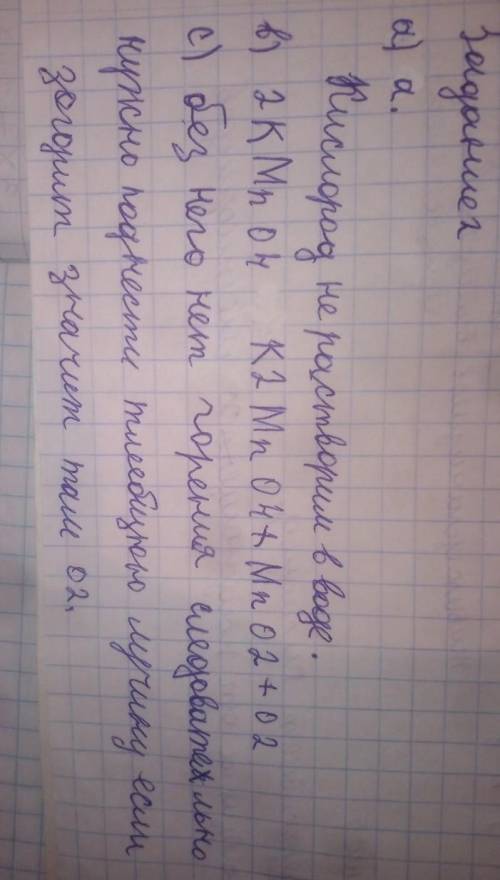 Задание 2
а) а.
Кислород не растворим в воде.
в) 2KMnO4 K2MnO4+MnO2+O2
с) без него нет горения следовательно
нужно поднести тлеющую лучину если
загорит значит там O2.